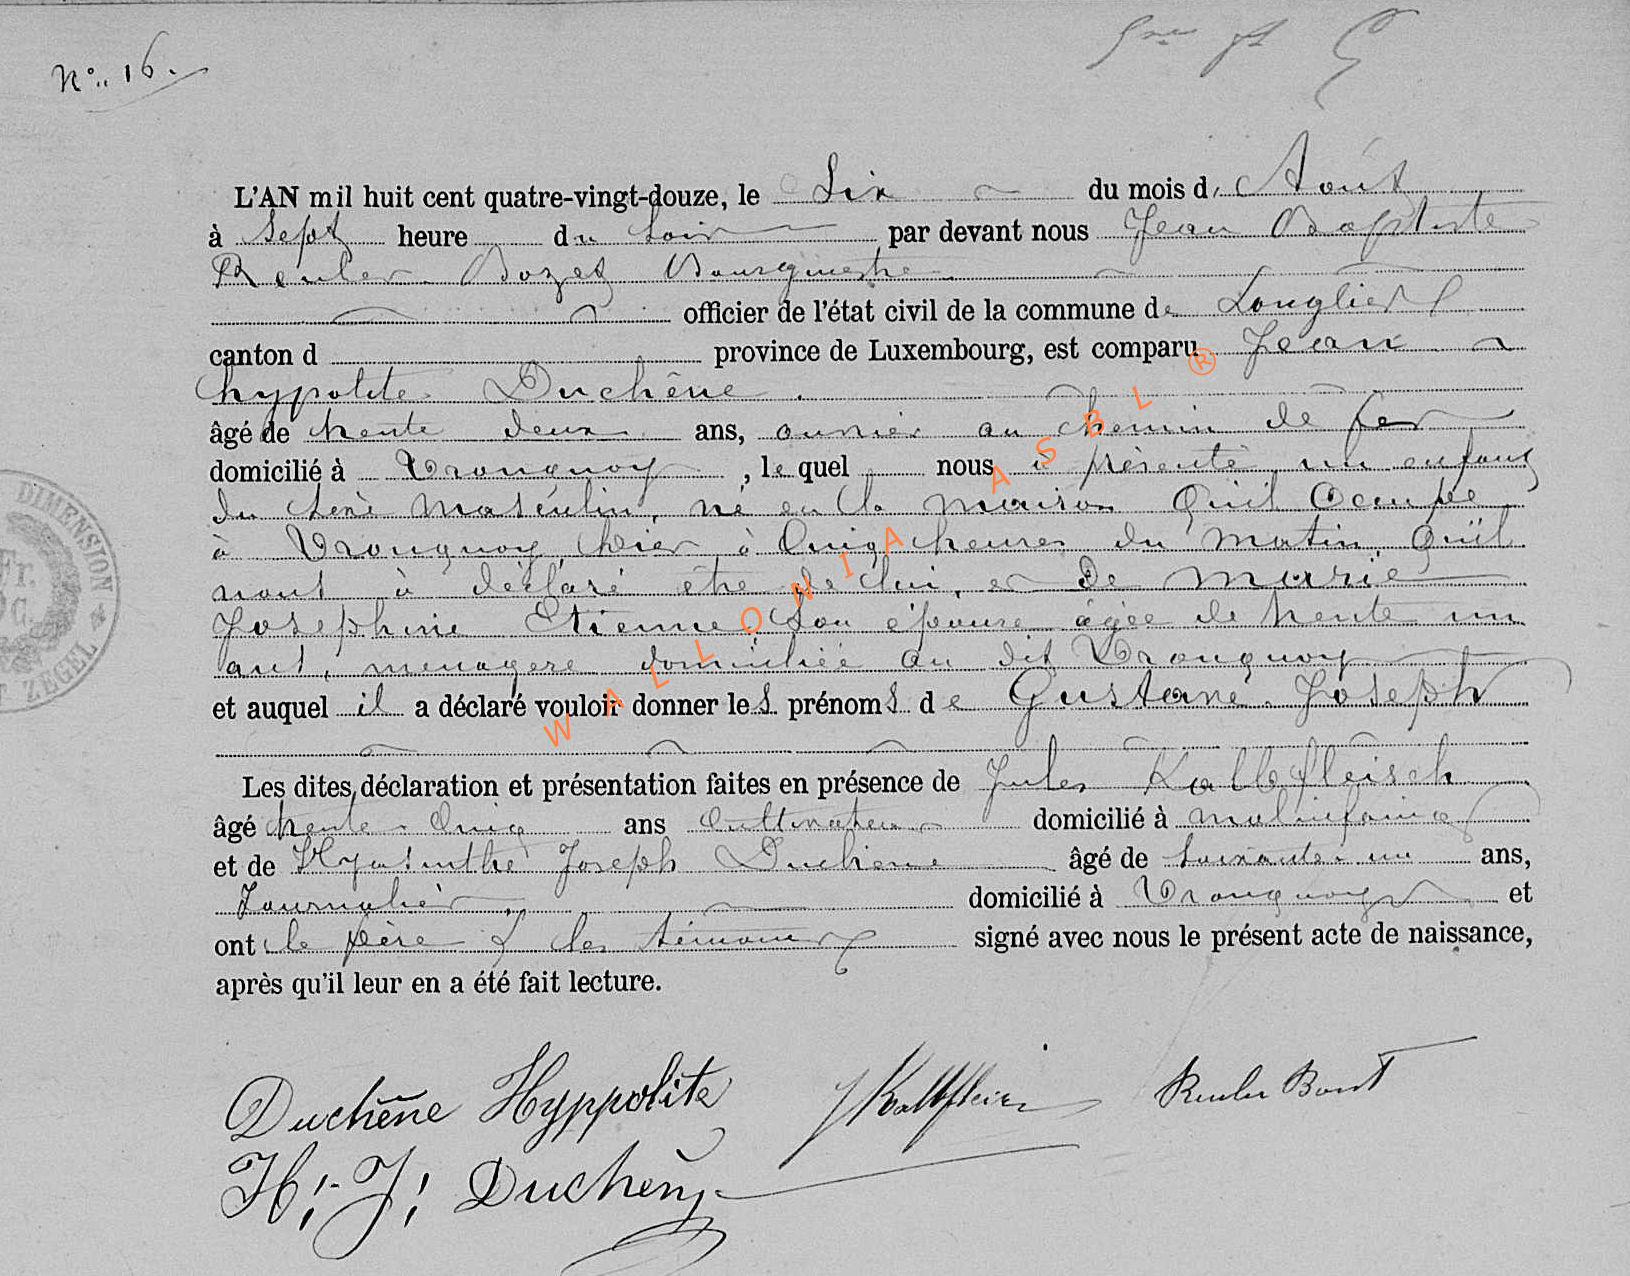 N° 16.
L'AN mil huit cent quatre-vingt-douze, le Six du mois d'Août
à Sept heure du Soir par devant nous Jean Baptiste
Reuler Bozet Bourgmestre
officier de l'état civil de la commune de Longlier
canton d province de Luxembourg, est comparu Jean
hypolite Duchêne
âgé de trente deux ans, ouvrier au chemin de fer
domicilié à Tronquoy, le quel nous à présenté un enfant
du sexe masculin, né en la maison Qu'il Occupe
à Tronquoy, hier à Cinq heures du matin, Qu'il
nous à déclaré être de lui, et De Marie
Josephine Etienne, Son épouse agée de trente un
ans, ménagere domiciliée au dit Tronquoy
et auquel il a déclaré vouloir donner les prénoms de Gustave Joseph
Les dites déclaration et présentation faites en présence de Jules Kalbfleisch
âgé trente Cinq ans Cultivateur domicilié à
et de Hyasinthe Joseph Duchêne âgé de Soixante un ans,
Journalier domicilié à Tronquoy et
ont le père & les témoins signé avec nous le présent acte de naissance,
après qu'il leur en a été fait lecture.
Duchêne Hyppolite
H. J. Duchêne
DIMENSION
ZEGEL
WALLONIA ASBL ®